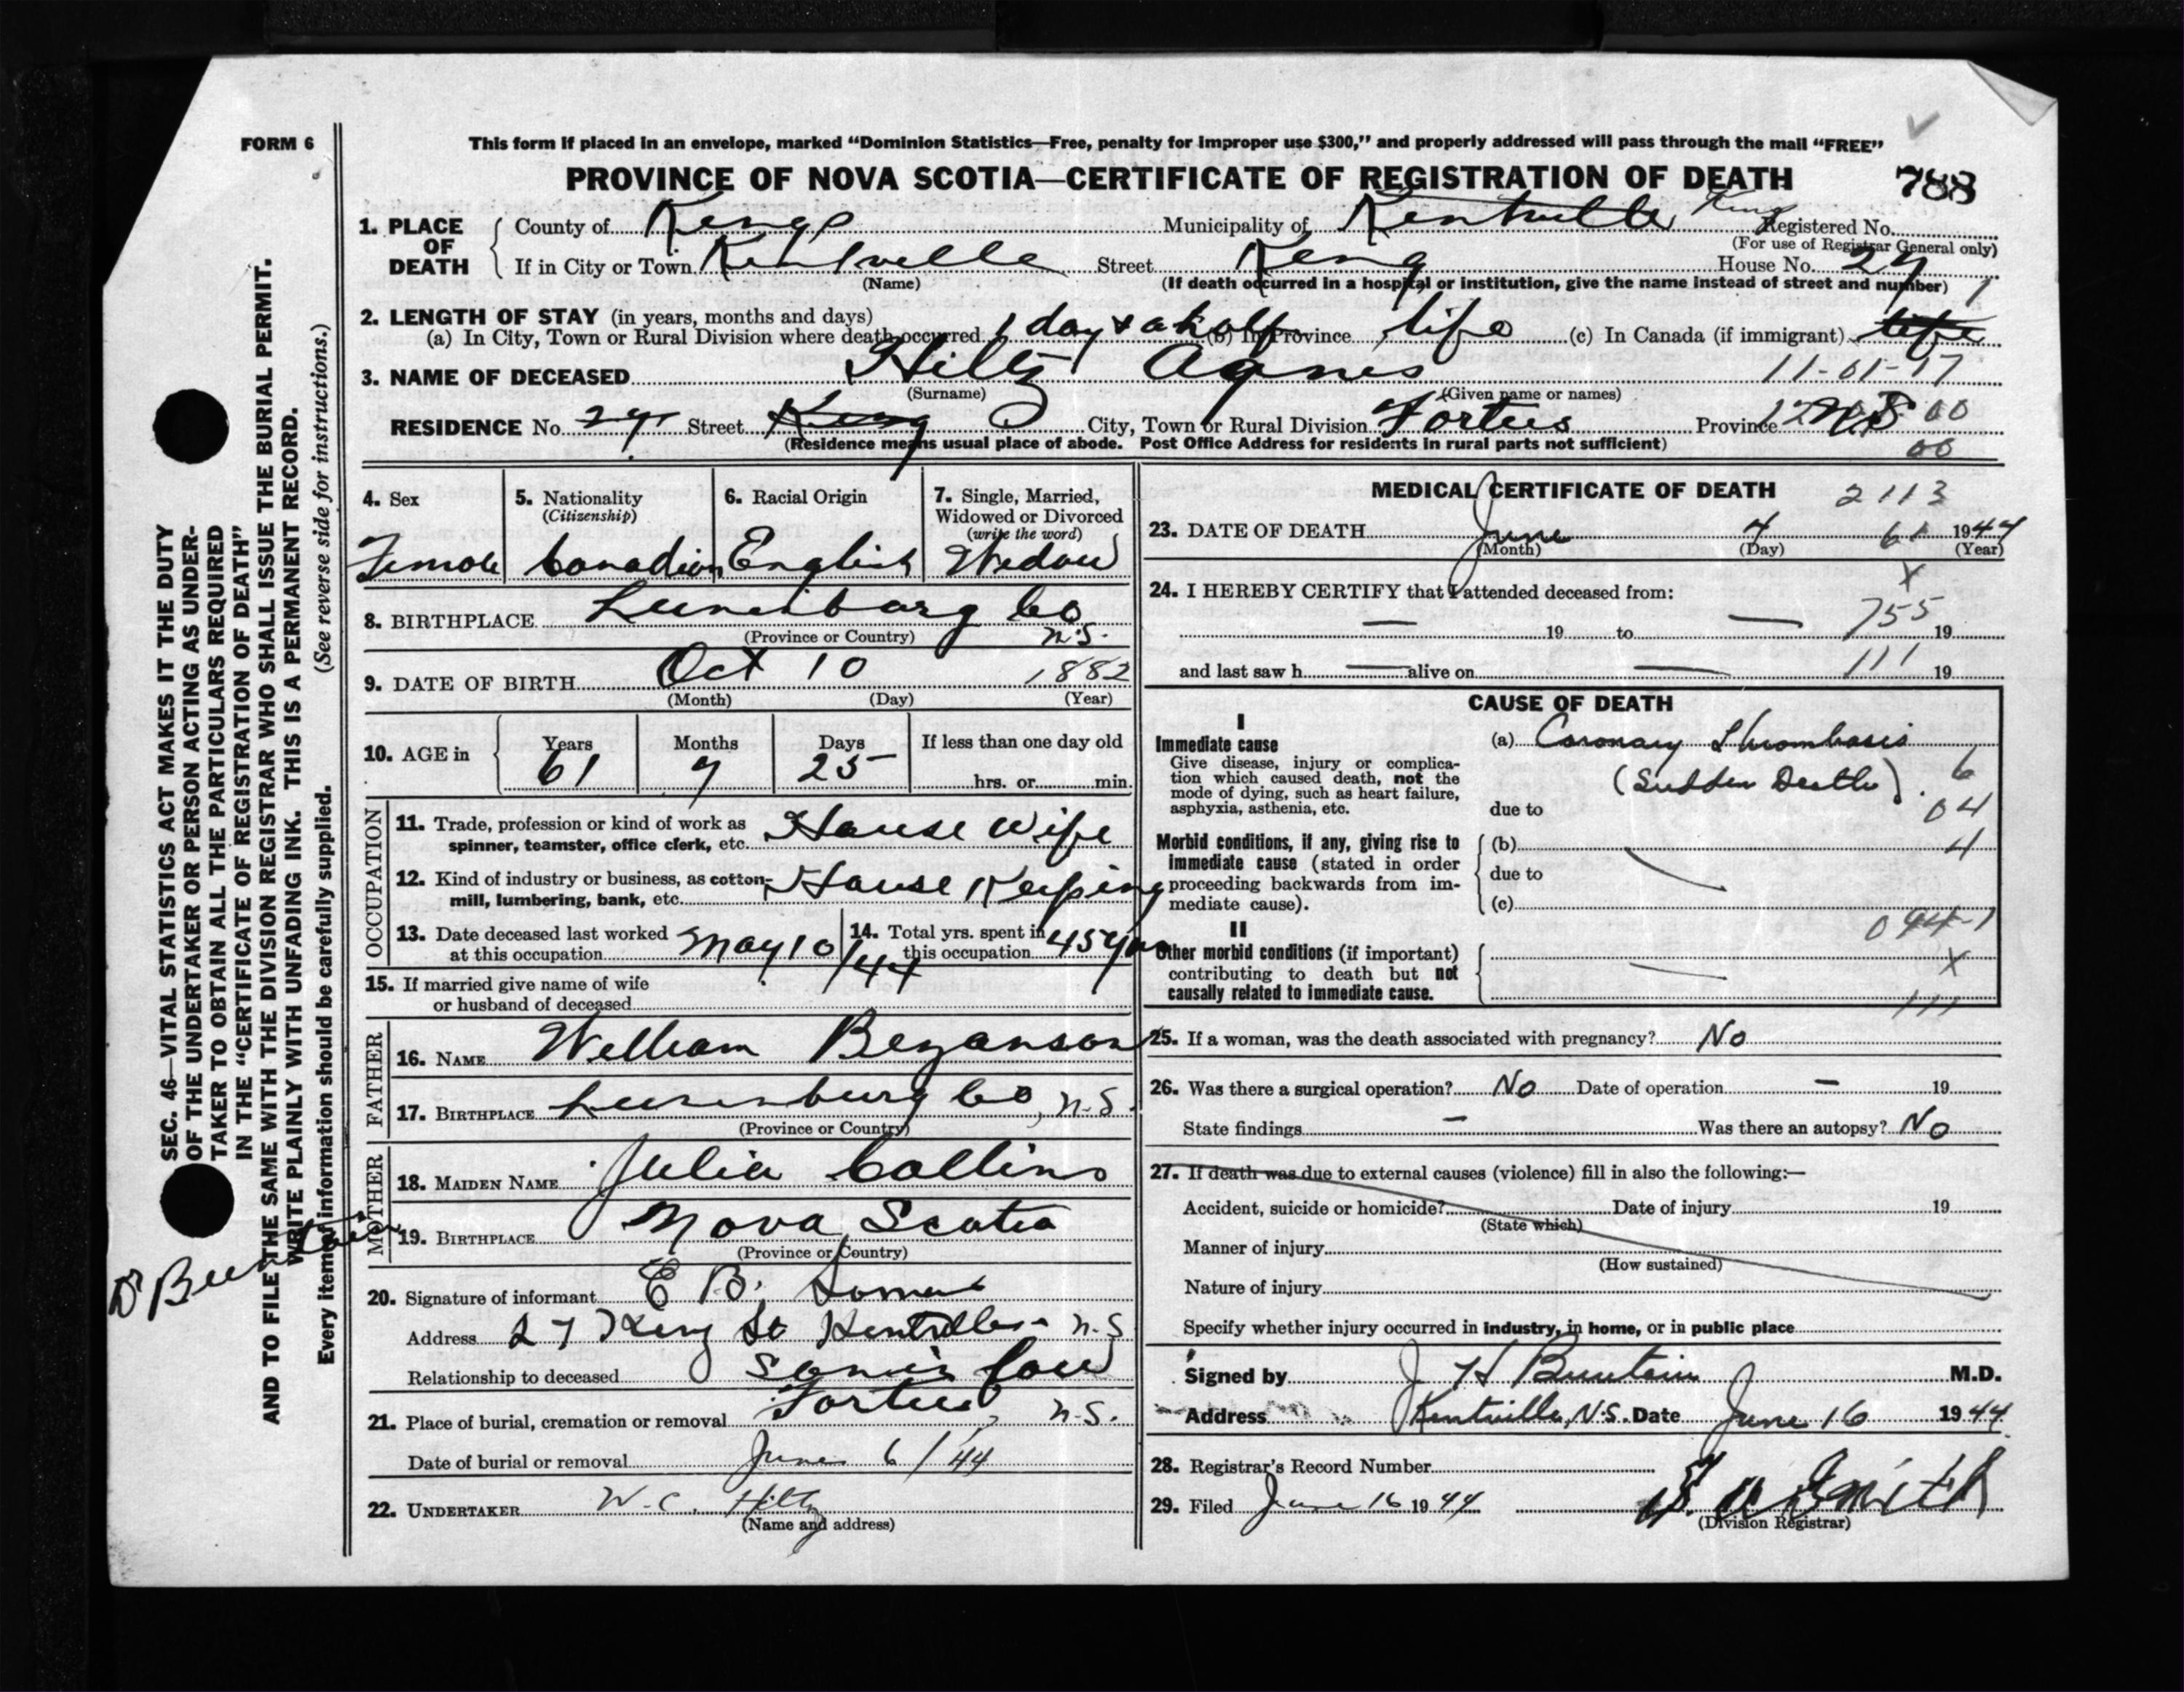 FORM 6
This form if placed in an envelope, marked “Dominion Statistics—Free, penalty for improper use $300,” and properly addressed will pass through the mail “FREE”
PROVINCE OF NOVA SCOTIA—CERTIFICATE OF REGISTRATION OF DEATH 788
1. PLACE OF DEATH County of Kings Municipality of Kentville Kings Registered No.
(For use of Registrar General only)
If in City or Town Kentville Street King House No. 27
(Name) (If death occurred in a hospital or institution, give the name instead of street and number) 1
2. LENGTH OF STAY (in years, months and days)
(a) In City, Town or Rural Division where death occurred 1 day & a half (b) In Province life (c) In Canada (if immigrant) life
3. NAME OF DECEASED Hiltz Agnes 11-01-17
(Surname) (Given name or names)
RESIDENCE No. 27 Street King City, Town or Rural Division Forties Province N S 00
(Residence means usual place of abode. Post Office Address for residents in rural parts not sufficient) 00
4. Sex 5. Nationality (Citizenship) 6. Racial Origin 7. Single, Married, Widowed or Divorced (write the word)
Female Canadian English Widow
8. BIRTHPLACE Lunenburg Co N.S.
(Province or Country)
9. DATE OF BIRTH Oct 10 1882
(Month) (Day) (Year)
10. AGE in Years Months Days If less than one day old
61 7 25 hrs. or min.
OCCUPATION
11. Trade, profession or kind of work as spinner, teamster, office clerk, etc. House Wife
12. Kind of industry or business, as cotton-mill, lumbering, bank, etc. House Keeping
13. Date deceased last worked at this occupation May 10/44 14. Total yrs. spent in this occupation 45 yrs
15. If married give name of wife or husband of deceased
FATHER
16. NAME William Bezanson
17. BIRTHPLACE Lunenburg Co, N.S.
(Province or Country)
MOTHER
18. MAIDEN NAME Julia Collins
19. BIRTHPLACE Nova Scotia
(Province or Country)
20. Signature of informant E B.
Address 27 King St Kentville N.S
Relationship to deceased son in law
21. Place of burial, cremation or removal Forties, N.S.
Date of burial or removal June 6/44
22. UNDERTAKER W. C. Hiltz
(Name and address)
MEDICAL CERTIFICATE OF DEATH 2113
23. DATE OF DEATH June 4 61 1944
(Month) (Day) (Year)
24. I HEREBY CERTIFY that I attended deceased from: x
— 19 to — 755 19
and last saw h — alive on — 111 19
CAUSE OF DEATH
I
Immediate cause
Give disease, injury or complication which caused death, not the mode of dying, such as heart failure, asphyxia, asthenia, etc.
(a) Coronary Thrombosis
(Sudden Death). 6
due to 04
Morbid conditions, if any, giving rise to immediate cause (stated in order proceeding backwards from immediate cause).
(b) 4
due to
(c)
094-1
II
Other morbid conditions (if important) contributing to death but not causally related to immediate cause.
x
111
25. If a woman, was the death associated with pregnancy? No
26. Was there a surgical operation? No Date of operation — 19
State findings — Was there an autopsy? No
27. If death was due to external causes (violence) fill in also the following:—
Accident, suicide or homicide? Date of injury 19
(State which)
Manner of injury
(How sustained)
Nature of injury
Specify whether injury occurred in industry, in home, or in public place
Signed by J H Buntain M.D.
Address Kentville, N.S. Date June 16 1944
28. Registrar's Record Number
29. Filed June 16 1944 Smith
(Division Registrar)
SEC. 46—VITAL STATISTICS ACT MAKES IT THE DUTY
OF THE UNDERTAKER OR PERSON ACTING AS UNDER-
TAKER TO OBTAIN ALL THE PARTICULARS REQUIRED
IN THE “CERTIFICATE OF REGISTRATION OF DEATH”
AND TO FILE THE SAME WITH THE DIVISION REGISTRAR WHO SHALL ISSUE THE BURIAL PERMIT.
WRITE PLAINLY WITH UNFADING INK. THIS IS A PERMANENT RECORD.
Every item of information should be carefully supplied. (See reverse side for instructions.)
Dr Buntain